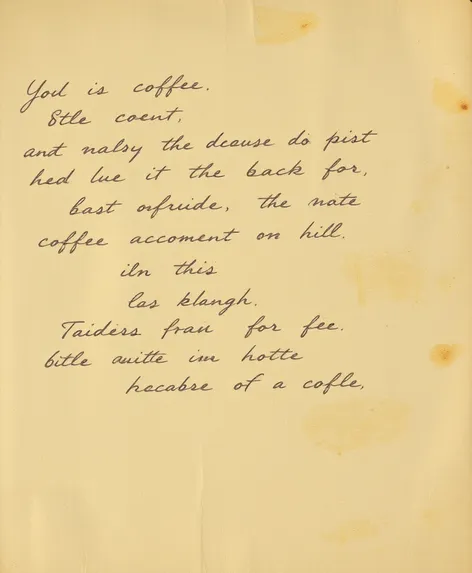 Yod is coffee.
Stle coent,
and nalsy the dcause do pist
hed lue it the back for,
bast orfruide, the nate
coffee accoment on hill.
iln this
las klangh.
Taiders frau for fee.
bitle auitte im hotte
hacabre of a cofle,